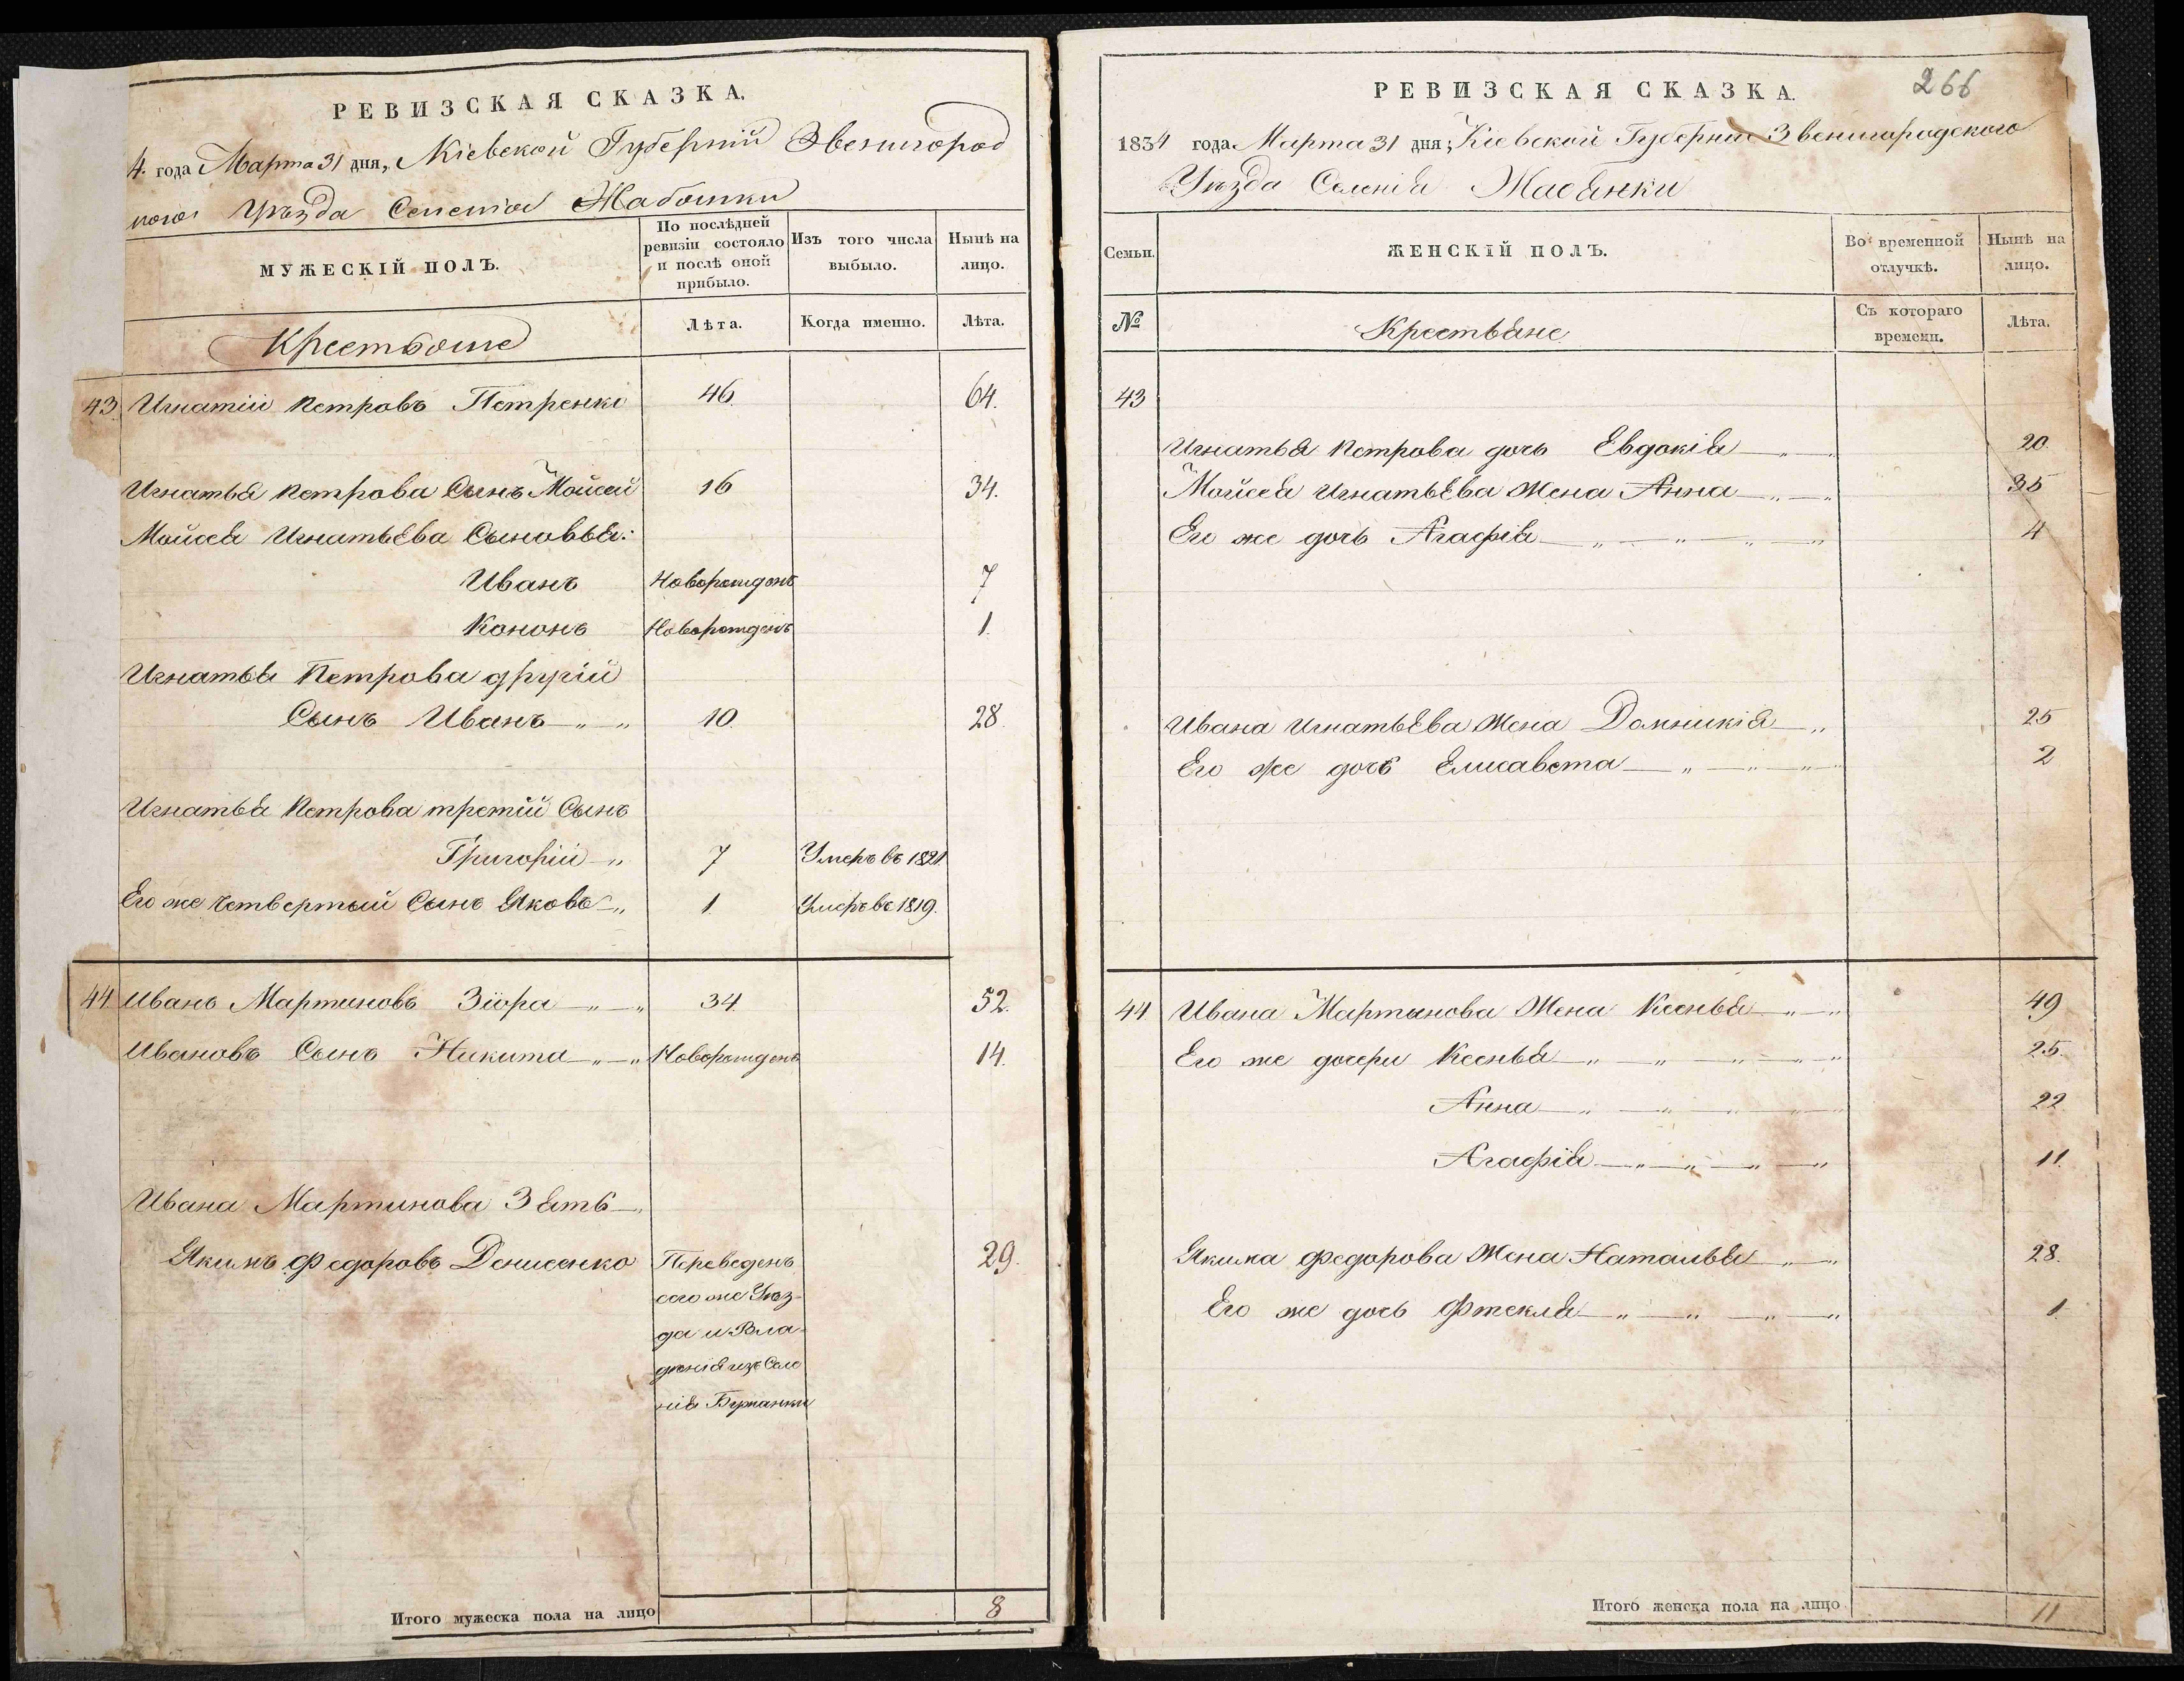 РЕВИЗСКАЯ СКАЗКА.
4. года Марта 31 дня, Кіевской Губерній Звенигород
кого Уѣзда Селенія Жабянки
МУЖЕСКІЙ ПОЛЪ.
По послѣдней ревизіи состояло и послѣ оной прибыло.
Изъ того числа выбыло.
Нынѣ на лицо.
Крестьяне
Лѣта.
Когда именно.
Лѣта.
43 Игнатій Петровъ Петренко 46 64.
Игнатья Петрова Сынъ Мойсей 16 34.
Мойсея Игнатьева Сыновья:
Иванъ Новорожденъ 7
Кононъ Новорожденъ 1.
Игнатья Петрова другій
Сынъ Иванъ 10. 28.
Игнатья Петрова третій Сынъ
Григорій 7 Умеръ въ 1821.
Его же четвертый Сынъ Яковъ 1 Умеръ въ 1819.
44. Иванъ Мартиновъ Зюра 34. 52.
Ивановъ Сынъ Никита Новорожденъ 14.
Ивана Мартинова Зять
Якимъ Федоровъ Денисенко Переведенъ 29.
сего же Уѣз-
да и Вла-
дѣнія изъ Селе
нія
Итого мужеска пола на лицо 8
РЕВИЗСКАЯ СКАЗКА.
266
1834 года Марта 31 дня, Кіевской Губерніи Звенигородского
Уѣзда Селенія Жабянки
Семьи.
ЖЕНСКІЙ ПОЛЪ.
Во временной отлучкѣ.
Нынѣ на лицо.
№
Крестьяне
Съ котораго времени.
Лѣта.
43
Игнатья Петрова дочь Евдокія 20.
Мойсея Игнатьева Жена Анна 35
Его же дочь Агафія 4
Ивана Игнатьева Жена Домникія 25
Его же дочь Елисавета 2
44 Ивана Мартынова Жена Ксенья 49
Его же дочери Ксенья 25.
Анна 22
Агафія 11.
Якима Федорова Жена Наталья 28.
Его же дочь Фтекля 1.
Итого женска пола на лицо 11